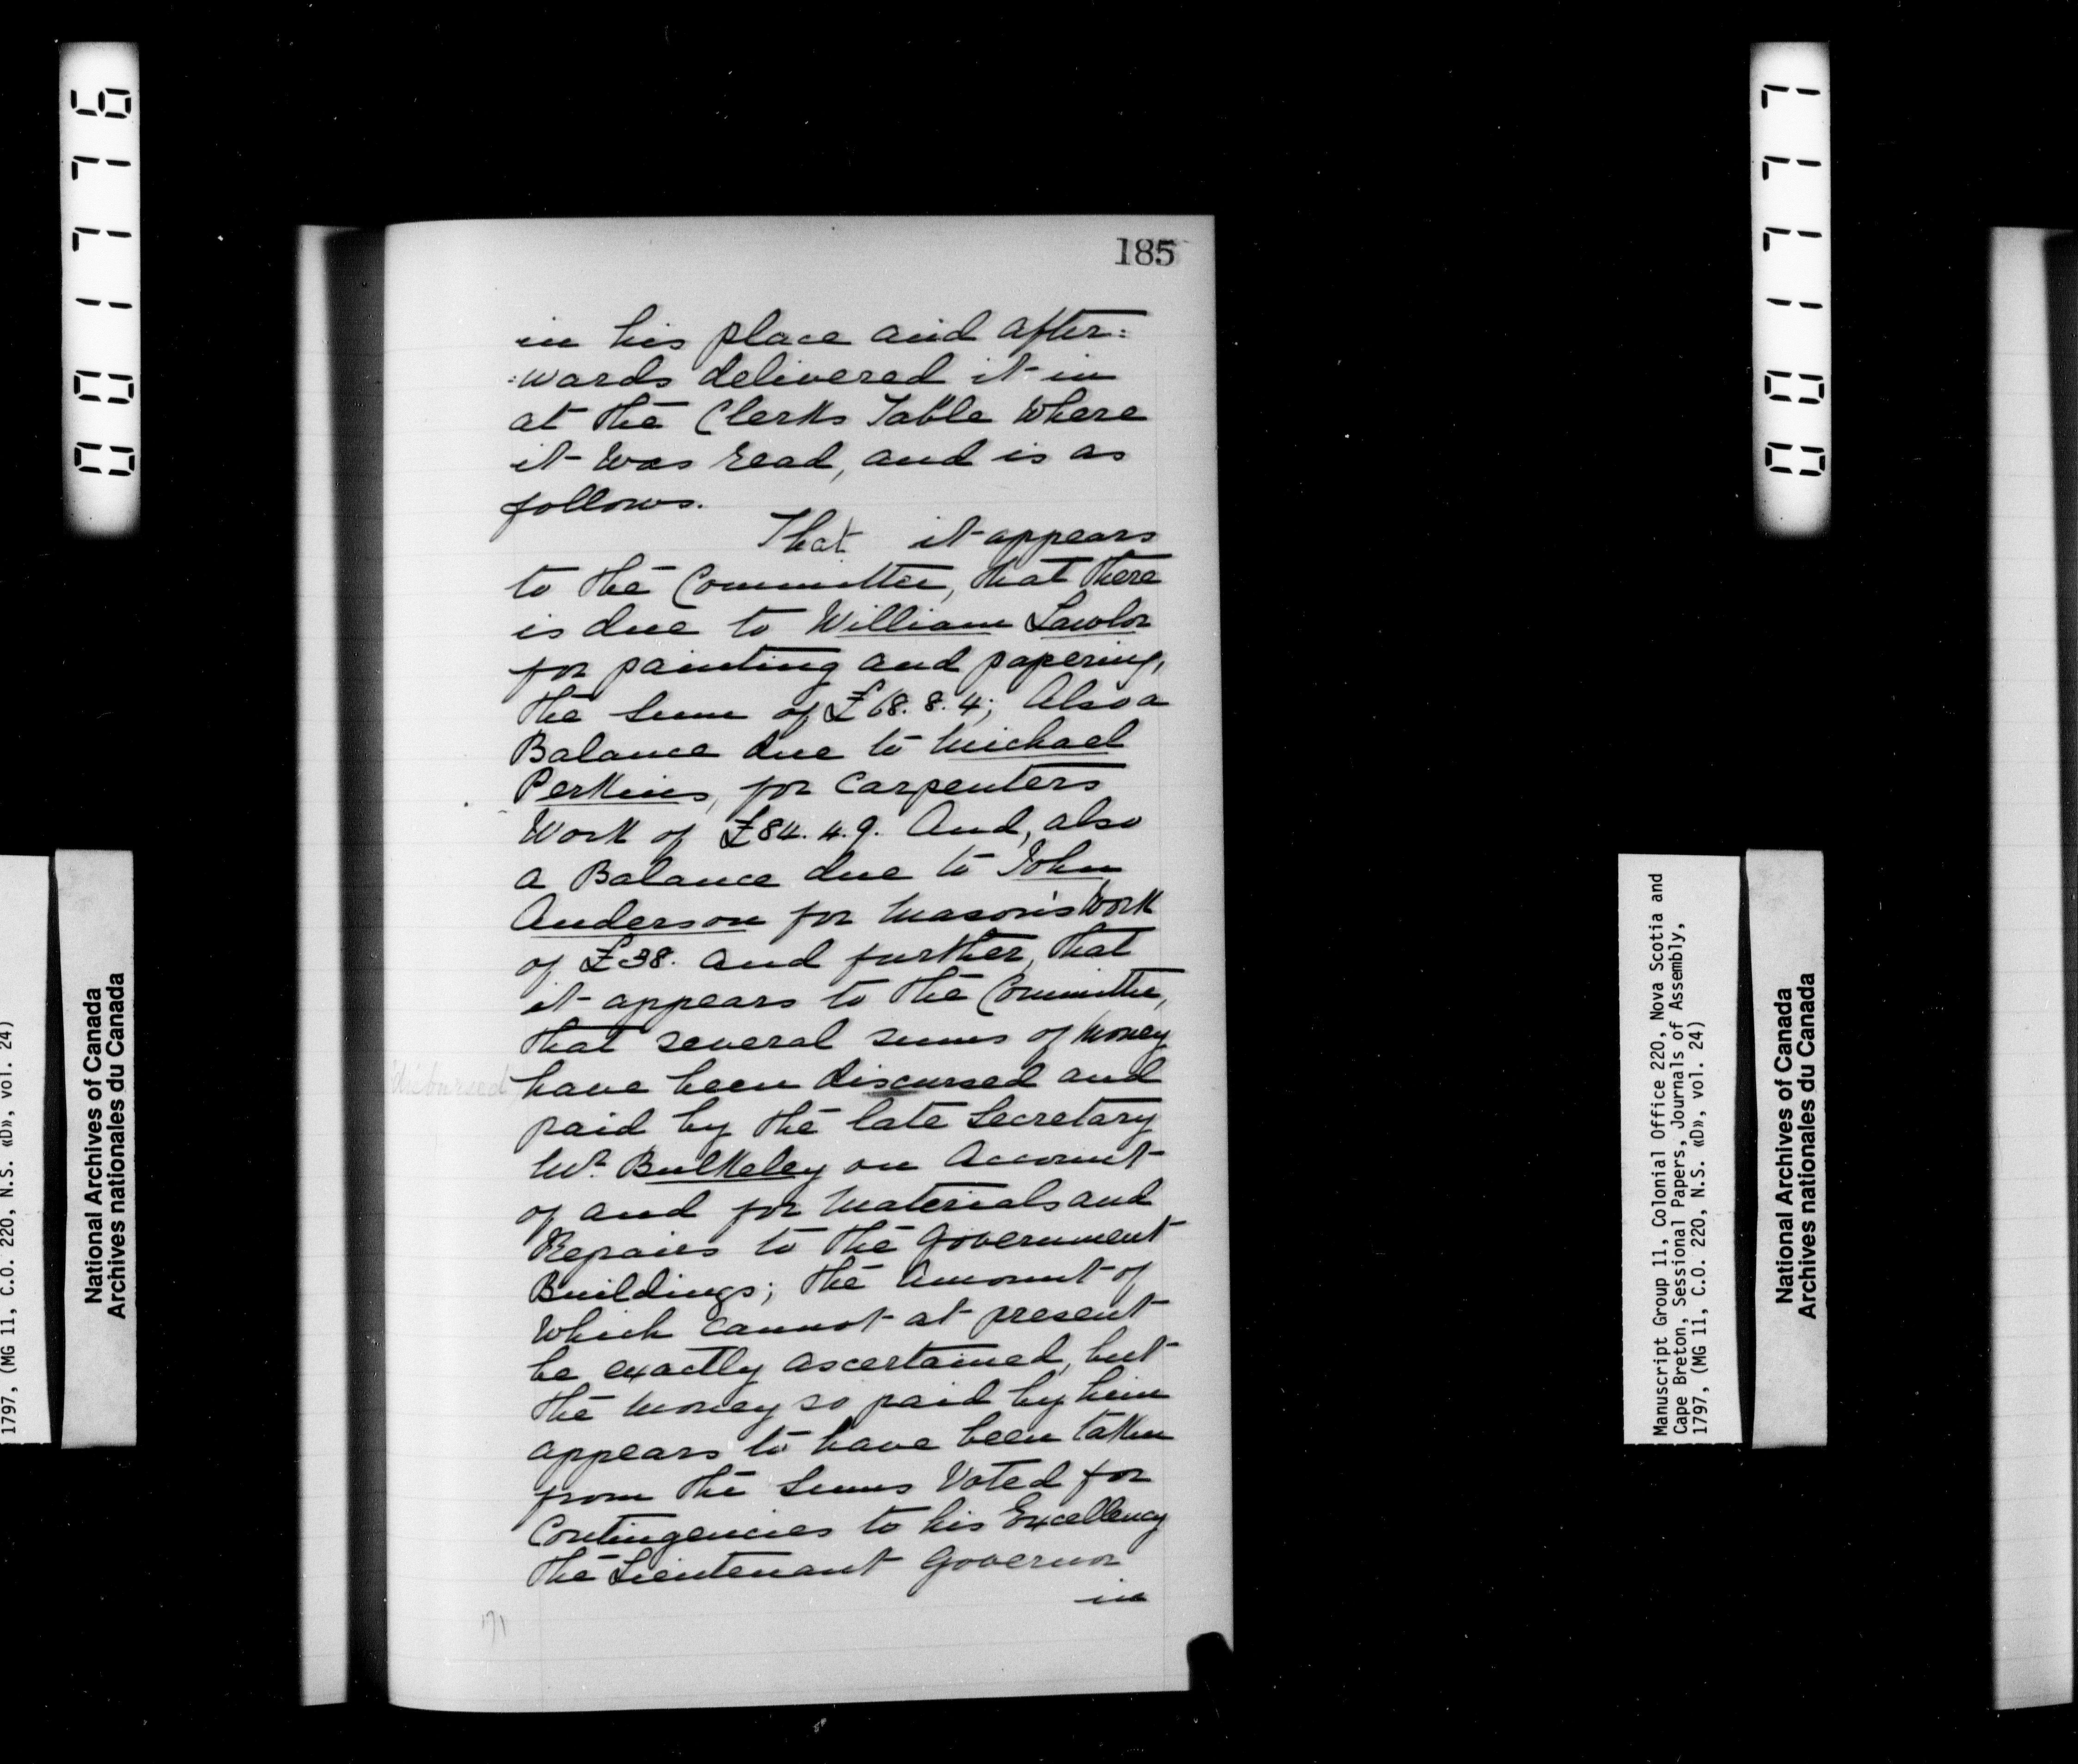 001776
National Archives of Canada
Archives nationales du Canada
1797, (MG 11, C.O. 220, N.S. «D», vol. 24)
185
in his place and after:
:wards delivered it in
at the Clerks Table Where
it Was read, and is as
follows.
That it appears
to the Committee, that there
is due to William Lawlor
for painting and papering,
the Sum of £68.8.4; Also a
Balance due to Michael
Perkins, for Carpenters
Work of £84.4.9. And, also
a Balance due to John
Anderson for Mason's Work
of £38. and further, that
it appears to the Committee,
that several sums of Money
have been discursed and
paid by the late Secretary
Mr. Bulkeley on Account
of and for Materials and
Repairs to the Government
Buildings; the Amount of
Which cannot at present
be exactly ascertained, but
the Money so paid by him
appears to have been taken
from the Sums Voted for
Contingencies to his Excellency
the Lieutenant Governor
in
171
001777
Manuscript Group 11, Colonial Office 220, Nova Scotia and
Cape Breton, Sessional Papers, Journals of Assembly,
1797, (MG 11, C.O. 220, N.S. «D», vol. 24)
National Archives of Canada
Archives nationales du Canada